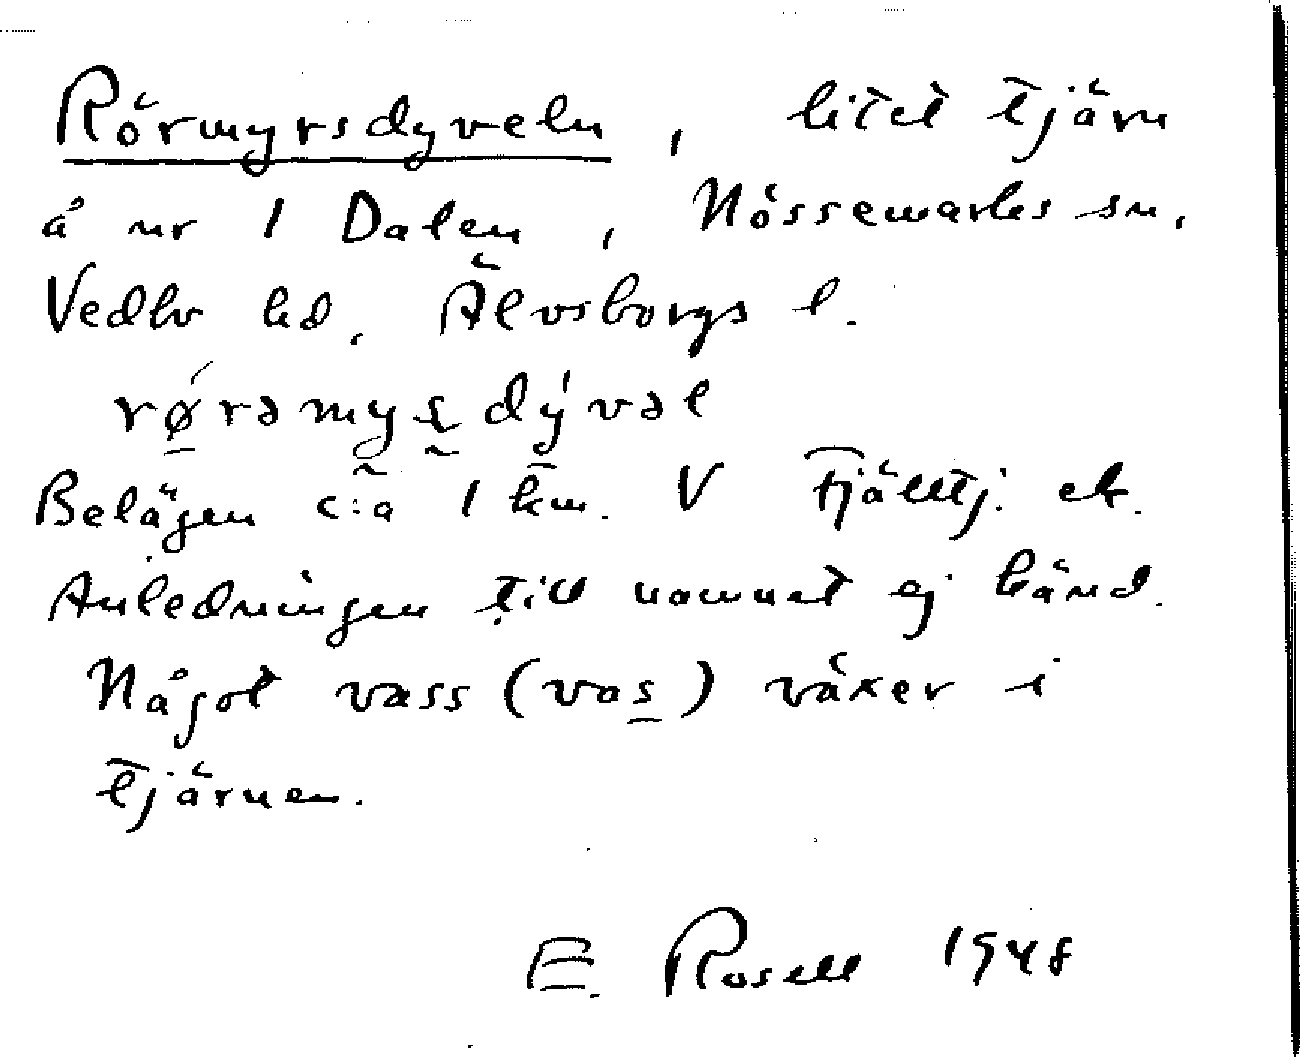 Rörmyrsdyveln, litet tjärn
å nr 1 Dalen, Nössemarks sn,
Vedbo hd, Älvsborgs l.
rørəmys dývəl
Belägen c:a 1 km. V Fjälltj. et.
Anledningen till namnet ej känd.
Något vass (vas) växer i
tjärnen.
E. Rosell 1948